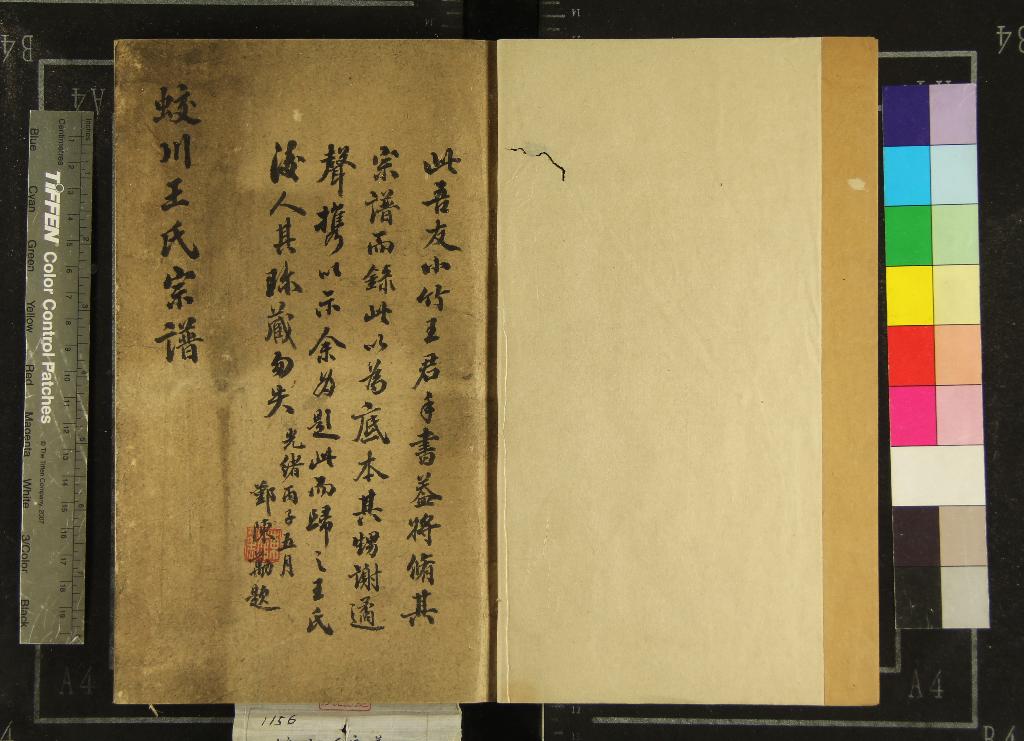 此吾友小竹王君手書葢将脩其
宗譜而錄此以為底本其甥謝遹
聲携以示余為題此而歸之王氏
後人其珎藏勿失
光緒丙子五月
鄞陳勱題
蛟川王氏宗譜
TIFFEN Color Control Patches
© The Tiffen Company, 2007
Centimetres
Inches
Blue
Cyan
Green
Yellow
Red
Magenta
White
3/Color
Black
B4
A4
A4
A4
B4
1156